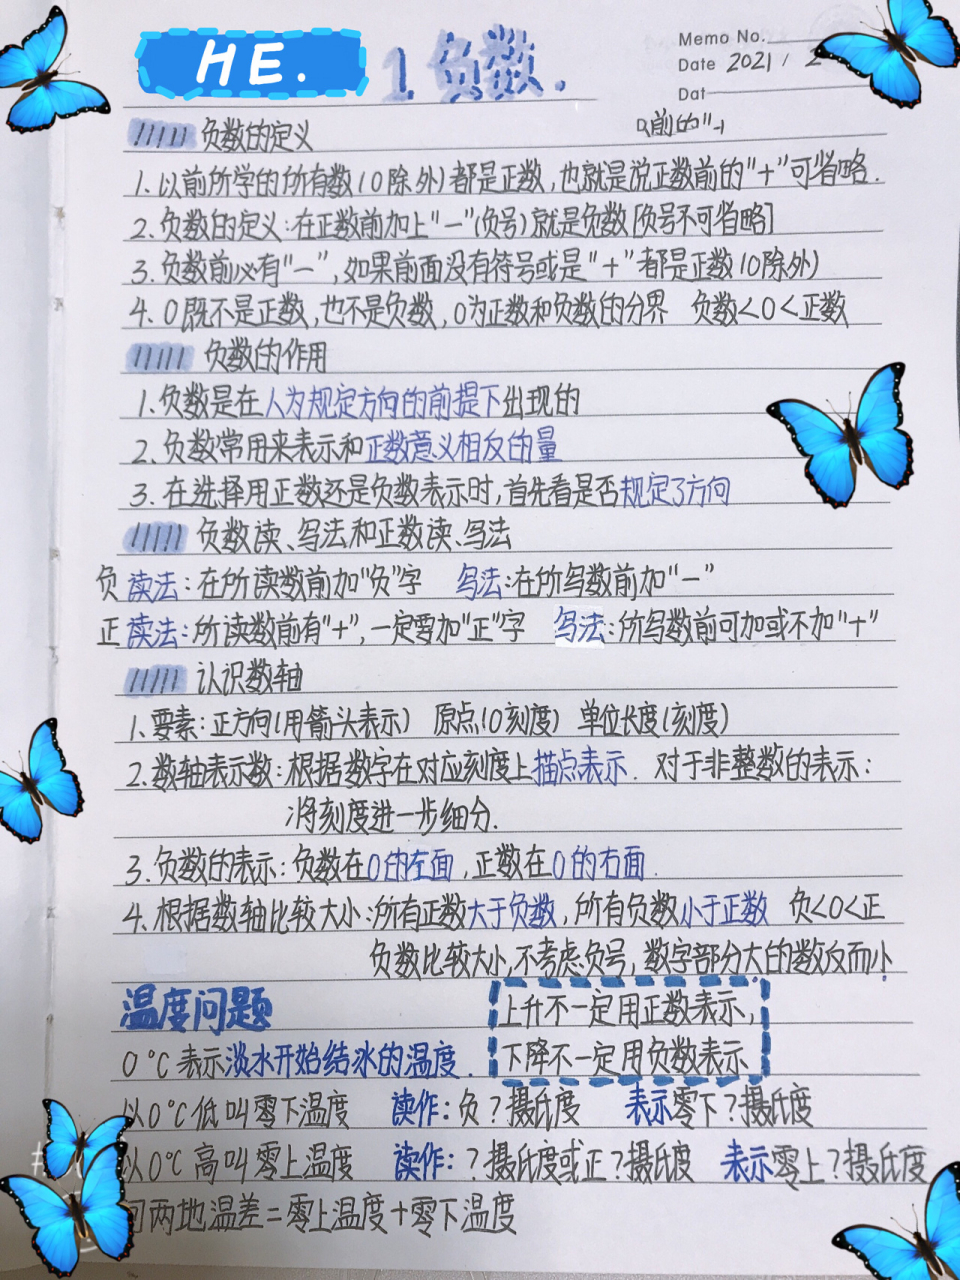 HE.
1. 负数.
Memo No.
Date 2021 / 2
Dat
前的"
负数的定义
1.以前所学的所有数(0除外)都是正数,也就是说正数前的"+"可省略.
2.负数的定义:在正数前加上"－"(负号)就是负数[负号不可省略]
3.负数前必有"－",如果前面没有符号或是"+"都是正数(0除外)
4.0既不是正数,也不是负数,0为正数和负数的分界 负数<0<正数
负数的作用
1.负数是在人为规定方向的前提下出现的
2.负数常用来表示和正数意义相反的量
3.在选择用正数还是负数表示时,首先看是否规定了方向
负数读、写法和正数读、写法
负读法:在所读数前加"负"字 写法:在所写数前加"－"
正读法:所读数前有"+",一定要加"正"字 写法:所写数前可加或不加"+"
认识数轴
1.要素:正方向(用箭头表示) 原点(0刻度) 单位长度(刻度)
2.数轴表示数:根据数字在对应刻度上描点表示. 对于非整数的表示:
:将刻度进一步细分.
3.负数的表示:负数在0的左面,正数在0的右面.
4.根据数轴比较大小:所有正数大于负数,所有负数小于正数 负<0<正
负数比较大小,不考虑负号,数字部分大的数反而小.
温度问题
上升不一定用正数表示,
下降不一定用负数表示
0℃表示淡水开始结冰的温度.
以0℃低叫零下温度 读作:负?摄氏度 表示零下?摄氏度
以0℃高叫零上温度 读作:?摄氏度或正?摄氏度 表示零上?摄氏度
两地温差=零上温度+零下温度